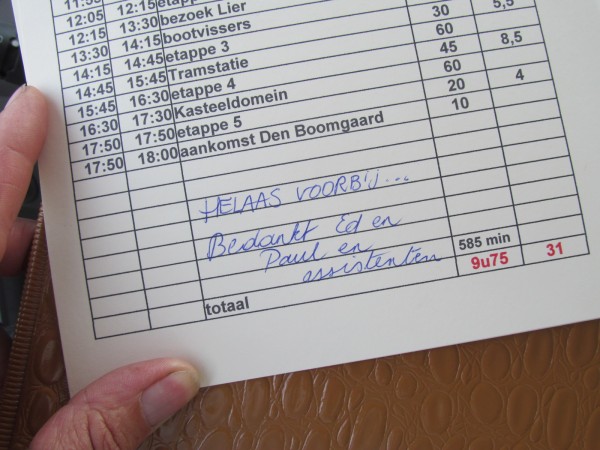 12:05 12:15 etappe
12:15 13:30 bezoek Lier
13:30 14:15 bootvissers
14:15 14:45 etappe 3 30 5,5
14:45 15:45 Tramstatie 60
15:45 16:30 etappe 4 45 8,5
16:30 17:30 Kasteeldomein 60
17:50 17:50 etappe 5 20 4
17:50 18:00 aankomst Den Boomgaard 10
HELAAS VOORBIJ...
Bedankt Ed en
Paul en
assistenten
585 min
totaal 9u75 31